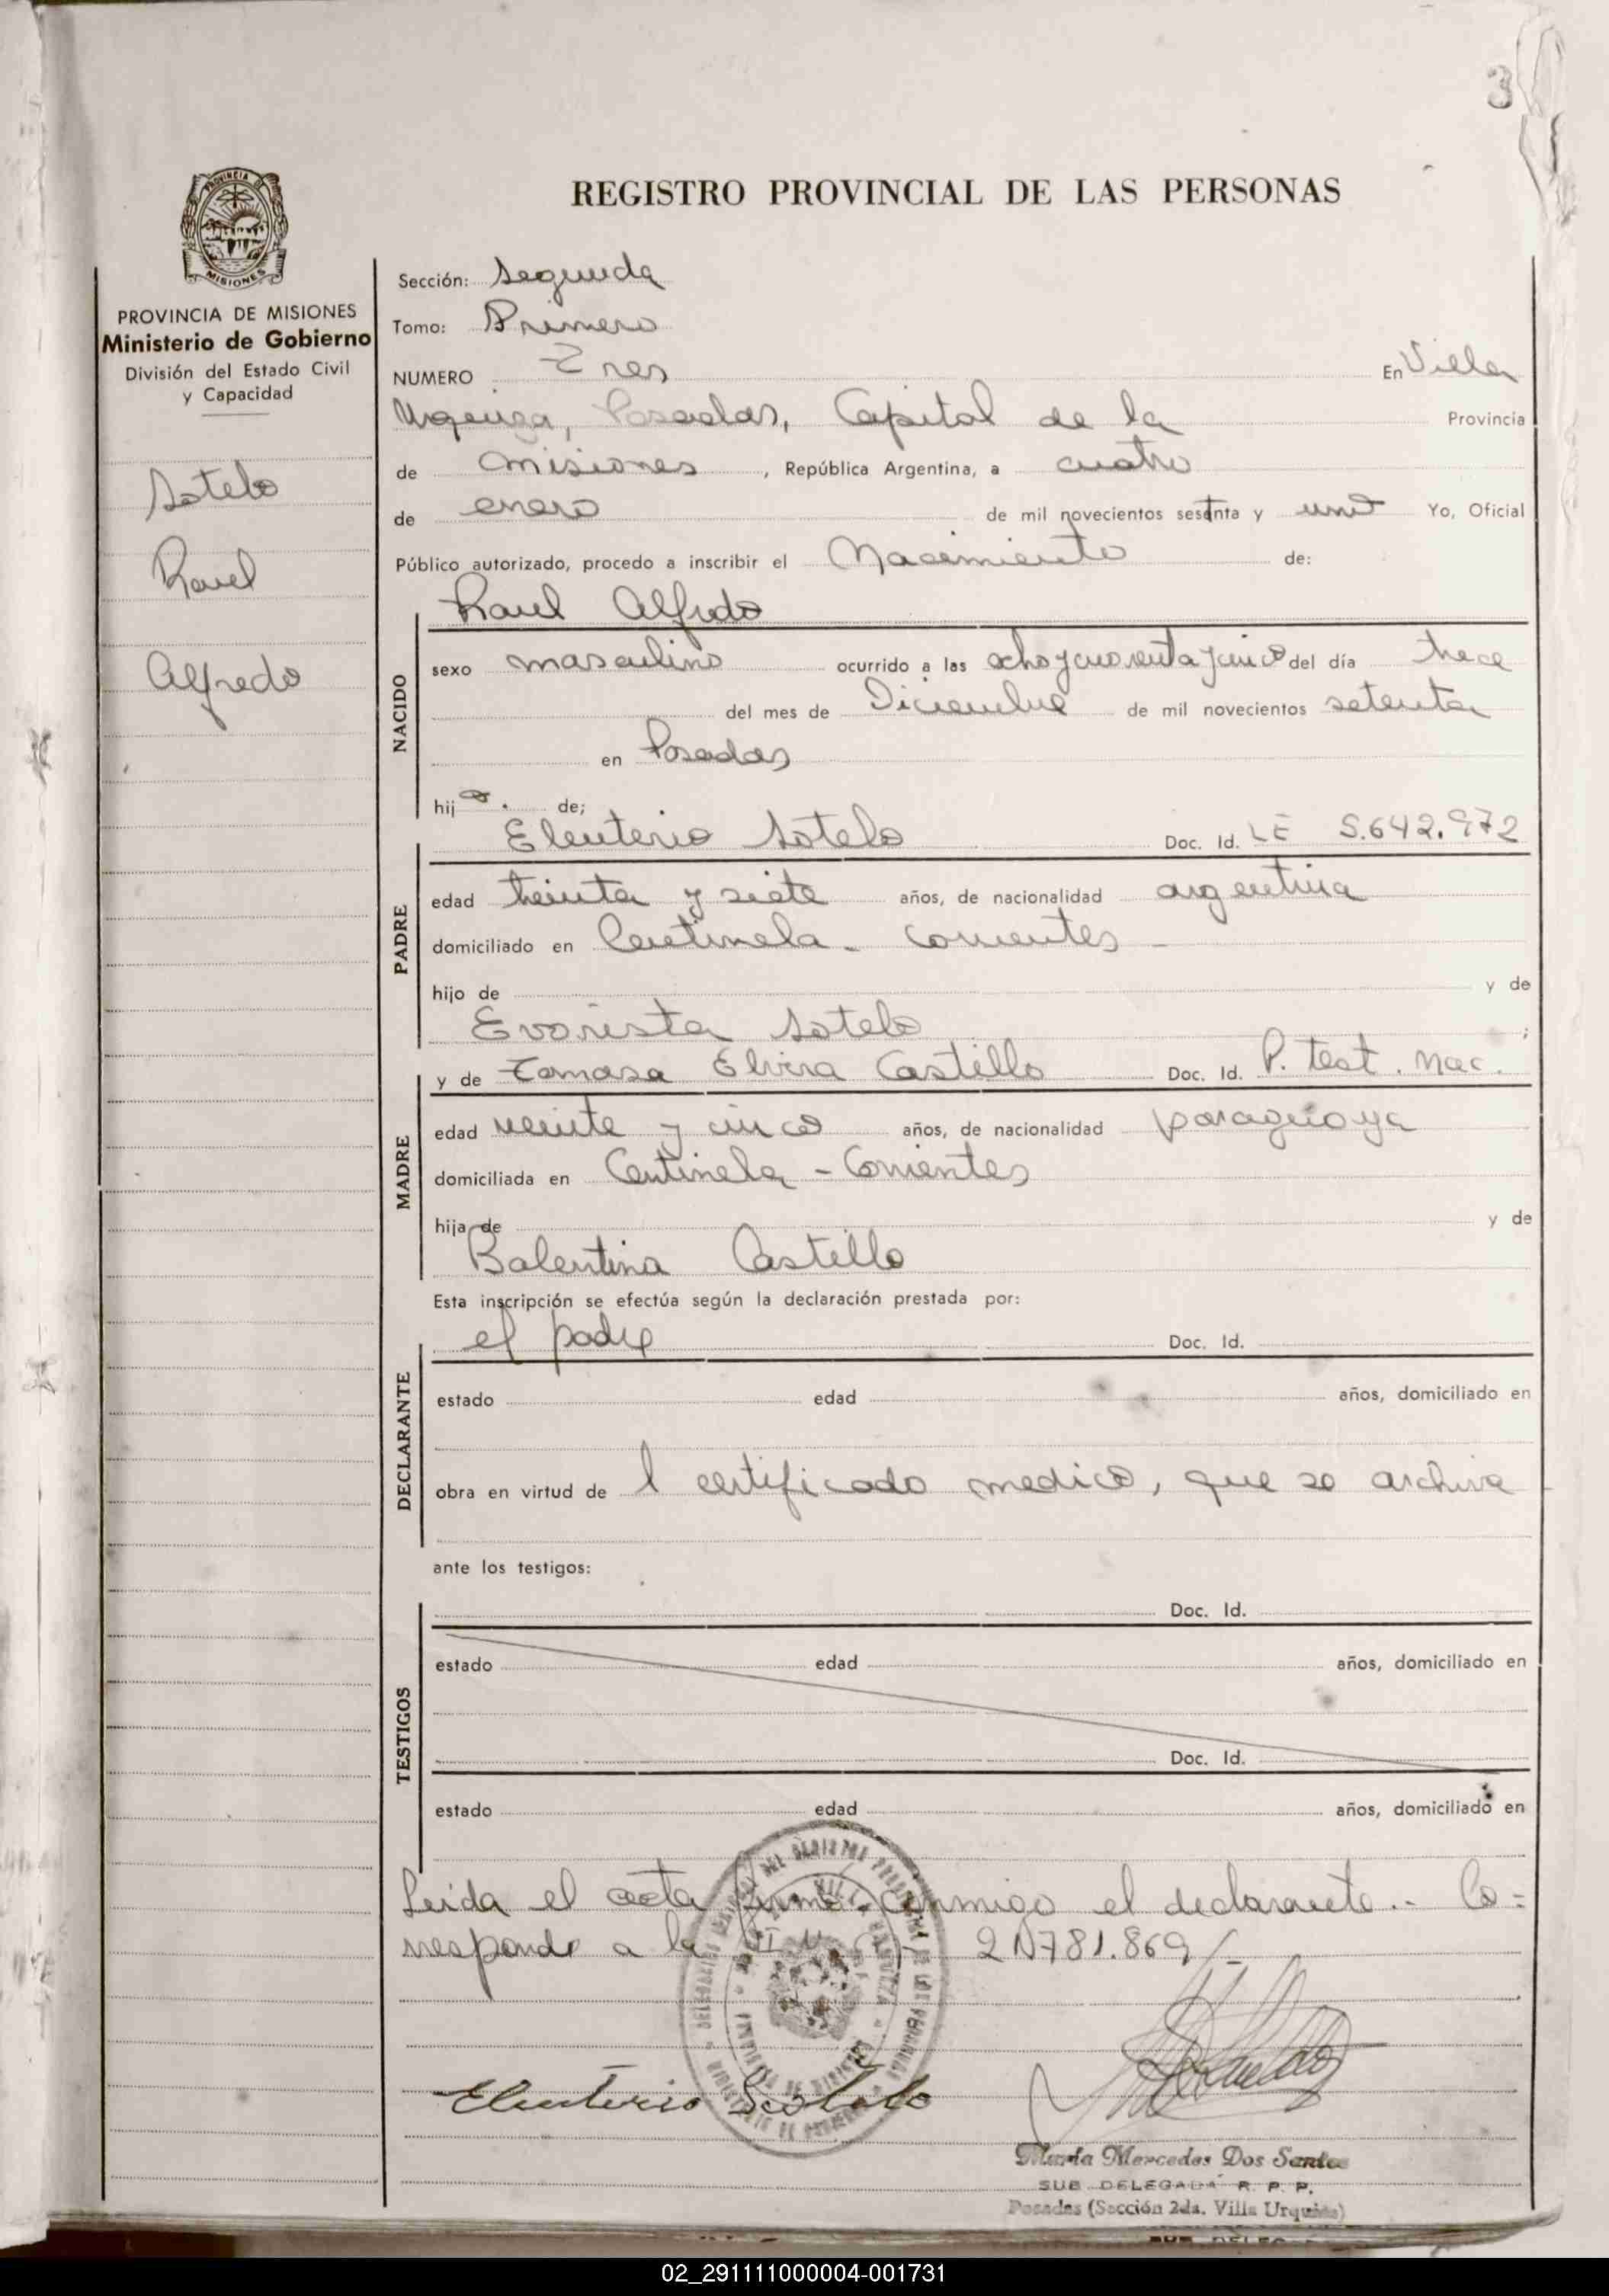 3
PROVINCIA DE
MISIONES
PROVINCIA DE MISIONES
Ministerio de Gobierno
División del Estado Civil
y Capacidad
Sotelo
Raul
Alfredo
REGISTRO PROVINCIAL DE LAS PERSONAS
Sección: Segunda
Tomo: Primero
NUMERO Tres En Villa
Urquiza, Posadas, Capital de la Provincia
de Misiones, República Argentina, a cuatro
de enero de mil novecientos sesenta y uno Yo, Oficial
Público autorizado, procedo a inscribir el Nacimiento de:
Raul Alfredo
NACIDO
sexo masculino ocurrido a las ocho y cuarenta y cinco del día trece
del mes de Diciembre de mil novecientos setenta
en Posadas
hijo. de;
Eleuterio Sotelo Doc. Id. LE 5.642.972
PADRE
edad treinta y siete años, de nacionalidad argentina
domiciliado en Centinela - Corrientes -
hijo de y de
Evarista Sotelo ;
y de Tomasa Elvira Castillo Doc. Id. P. Test. Nac.
MADRE
edad veinte y cinco años, de nacionalidad paraguaya
domiciliada en Centinela - Corrientes
hija de y de
Balentina Castillo
Esta inscripción se efectúa según la declaración prestada por:
el padre Doc. Id.
DECLARANTE
estado edad años, domiciliado en
obra en virtud de l certificado medico, que se archiva
ante los testigos:
Doc. Id.
TESTIGOS
estado edad años, domiciliado en
Doc. Id.
estado edad años, domiciliado en
Leida el acta firma conmigo el declarante.- Co=
rresponde a la 21781.869/-
Eleuterio Sotelo
María Mercedes Dos Santos
SUB DELEGADA R. P. P.
Posadas (Sección 2da. Villa Urquiza)
02_291111000004-001731